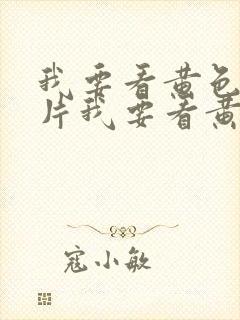 我要看黄色
片我要看黄
寇小敏